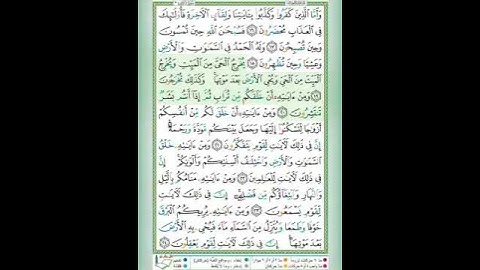 وَأَمَّا ٱلَّذِينَ كَفَرُوا۟ وَكَذَّبُوا۟ بِـَٔايَـٰتِنَا وَلِقَآئِ ٱلْـَٔاخِرَةِ فَأُو۟لَـٰٓئِكَ
فِى ٱلْعَذَابِ مُحْضَرُونَ ١٦ فَسُبْحَـٰنَ ٱللَّهِ حِينَ تُمْسُونَ
وَحِينَ تُصْبِحُونَ ١٧ وَلَهُ ٱلْحَمْدُ فِى ٱلسَّمَـٰوَٰتِ وَٱلْأَرْضِ
وَعَشِيًّا وَحِينَ تُظْهِرُونَ ١٨ يُخْرِجُ ٱلْحَىَّ مِنَ ٱلْمَيِّتِ وَيُخْرِجُ
ٱلْمَيِّتَ مِنَ ٱلْحَىِّ وَيُحْىِ ٱلْأَرْضَ بَعْدَ مَوْتِهَا ۚ وَكَذَٰلِكَ تُخْرَجُونَ
١٩ وَمِنْ ءَايَـٰتِهِۦٓ أَنْ خَلَقَكُم مِّن تُرَابٍ ثُمَّ إِذَآ أَنتُم بَشَرٌ
تَنتَشِرُونَ ٢٠ وَمِنْ ءَايَـٰتِهِۦٓ أَنْ خَلَقَ لَكُم مِّنْ أَنفُسِكُمْ
أَزْوَٰجًا لِّتَسْكُنُوٓا۟ إِلَيْهَا وَجَعَلَ بَيْنَكُم مَّوَدَّةً وَرَحْمَةً ۚ
إِنَّ فِى ذَٰلِكَ لَـَٔايَـٰتٍ لِّقَوْمٍ يَتَفَكَّرُونَ ٢١ وَمِنْ ءَايَـٰتِهِۦ خَلْقُ
ٱلسَّمَـٰوَٰتِ وَٱلْأَرْضِ وَٱخْتِلَـٰفُ أَلْسِنَتِكُمْ وَأَلْوَٰنِكُمْ ۚ
إِنَّ فِى ذَٰلِكَ لَـَٔايَـٰتٍ لِّلْعَـٰلِمِينَ ٢٢ وَمِنْ ءَايَـٰتِهِۦ مَنَامُكُم بِٱلَّيْلِ
وَٱلنَّهَارِ وَٱبْتِغَآؤُكُم مِّن فَضْلِهِۦٓ ۚ إِنَّ فِى ذَٰلِكَ لَـَٔايَـٰتٍ
لِّقَوْمٍ يَسْمَعُونَ ٢٣ وَمِنْ ءَايَـٰتِهِۦ يُرِيكُمُ ٱلْبَرْقَ
خَوْفًا وَطَمَعًا وَيُنَزِّلُ مِنَ ٱلسَّمَآءِ مَآءً فَيُحْىِۦ بِهِ ٱلْأَرْضَ
بَعْدَ مَوْتِهَآ ۚ إِنَّ فِى ذَٰلِكَ لَـَٔايَـٰتٍ لِّقَوْمٍ يَعْقِلُونَ ٢٤